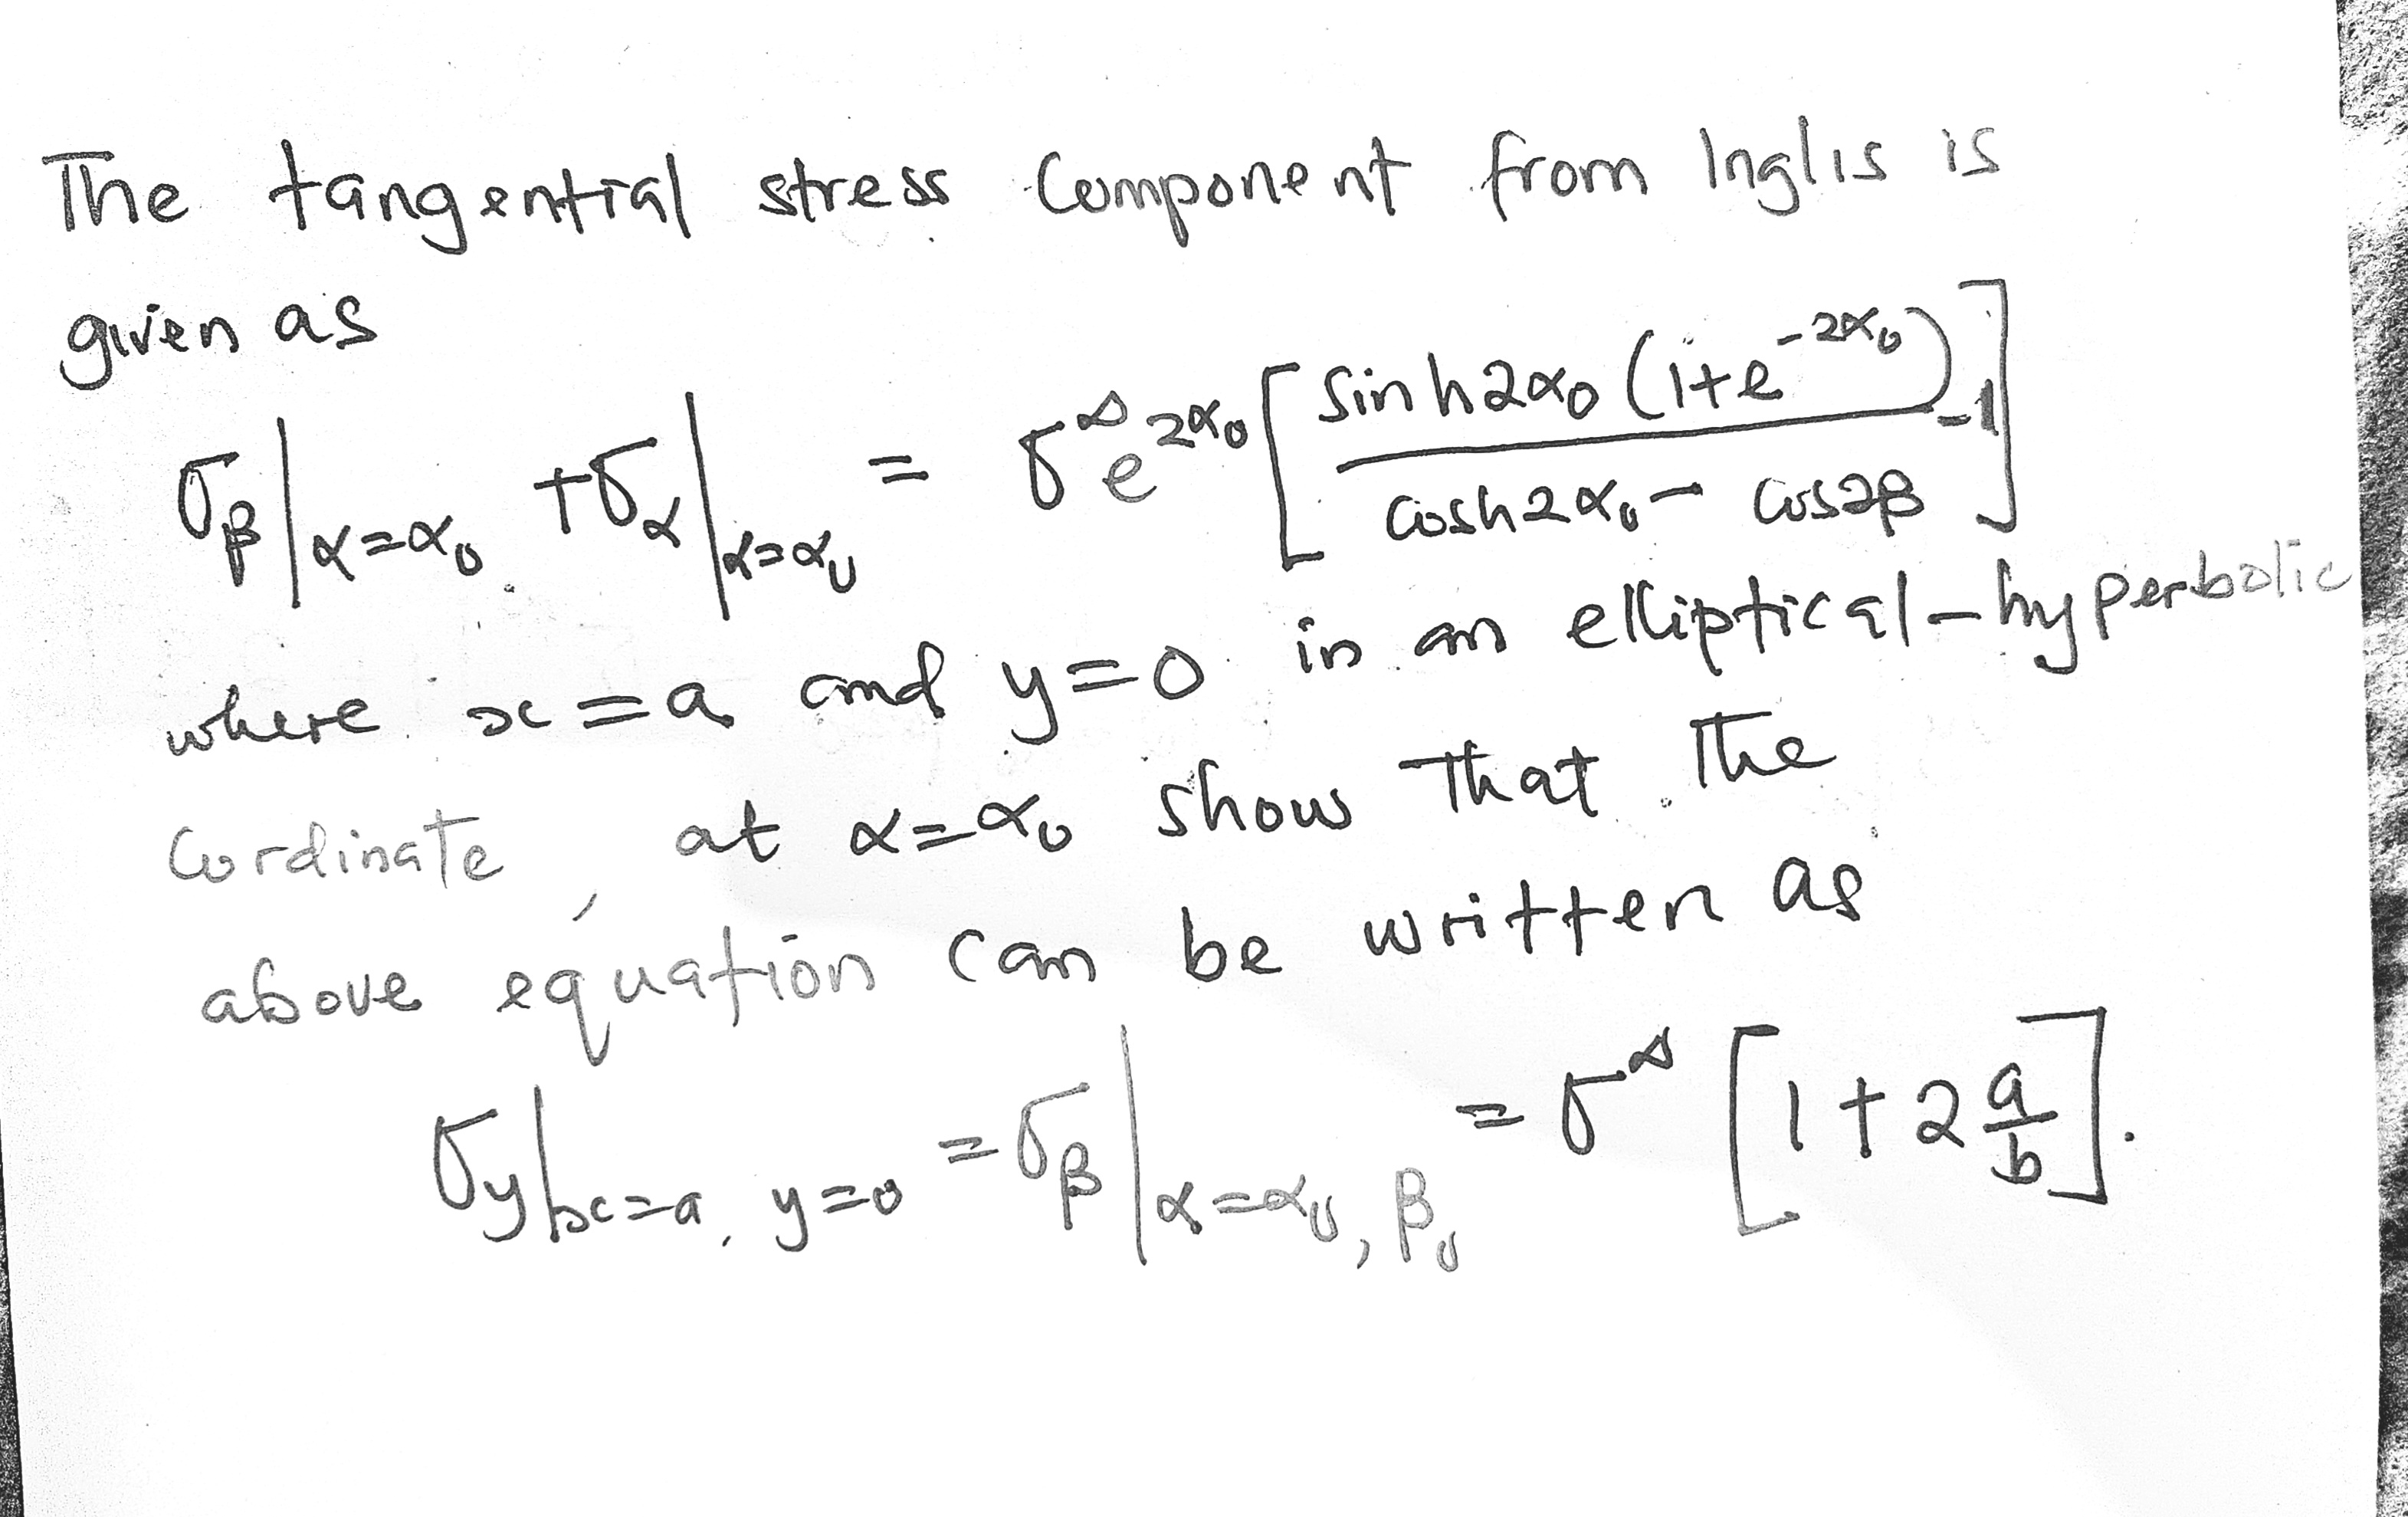 The tangential stress Component from Inglis is
given as
σ_β|_{α=α₀} + σ_α|_{α=α₀} = σ^∞ e^{2α₀} [ sinh2α₀ (1+e^{-2α₀}) / (cosh2α₀ - cos2β) - 1 ]
where x=a and y=0 in an elliptical-hyperbolic
Cordinate, at α=α₀ show that the
above equation can be written as
σ_y|_{x=a, y=0} = σ_β|_{α=α₀, β₀} = σ^∞ [1+2 a/b].